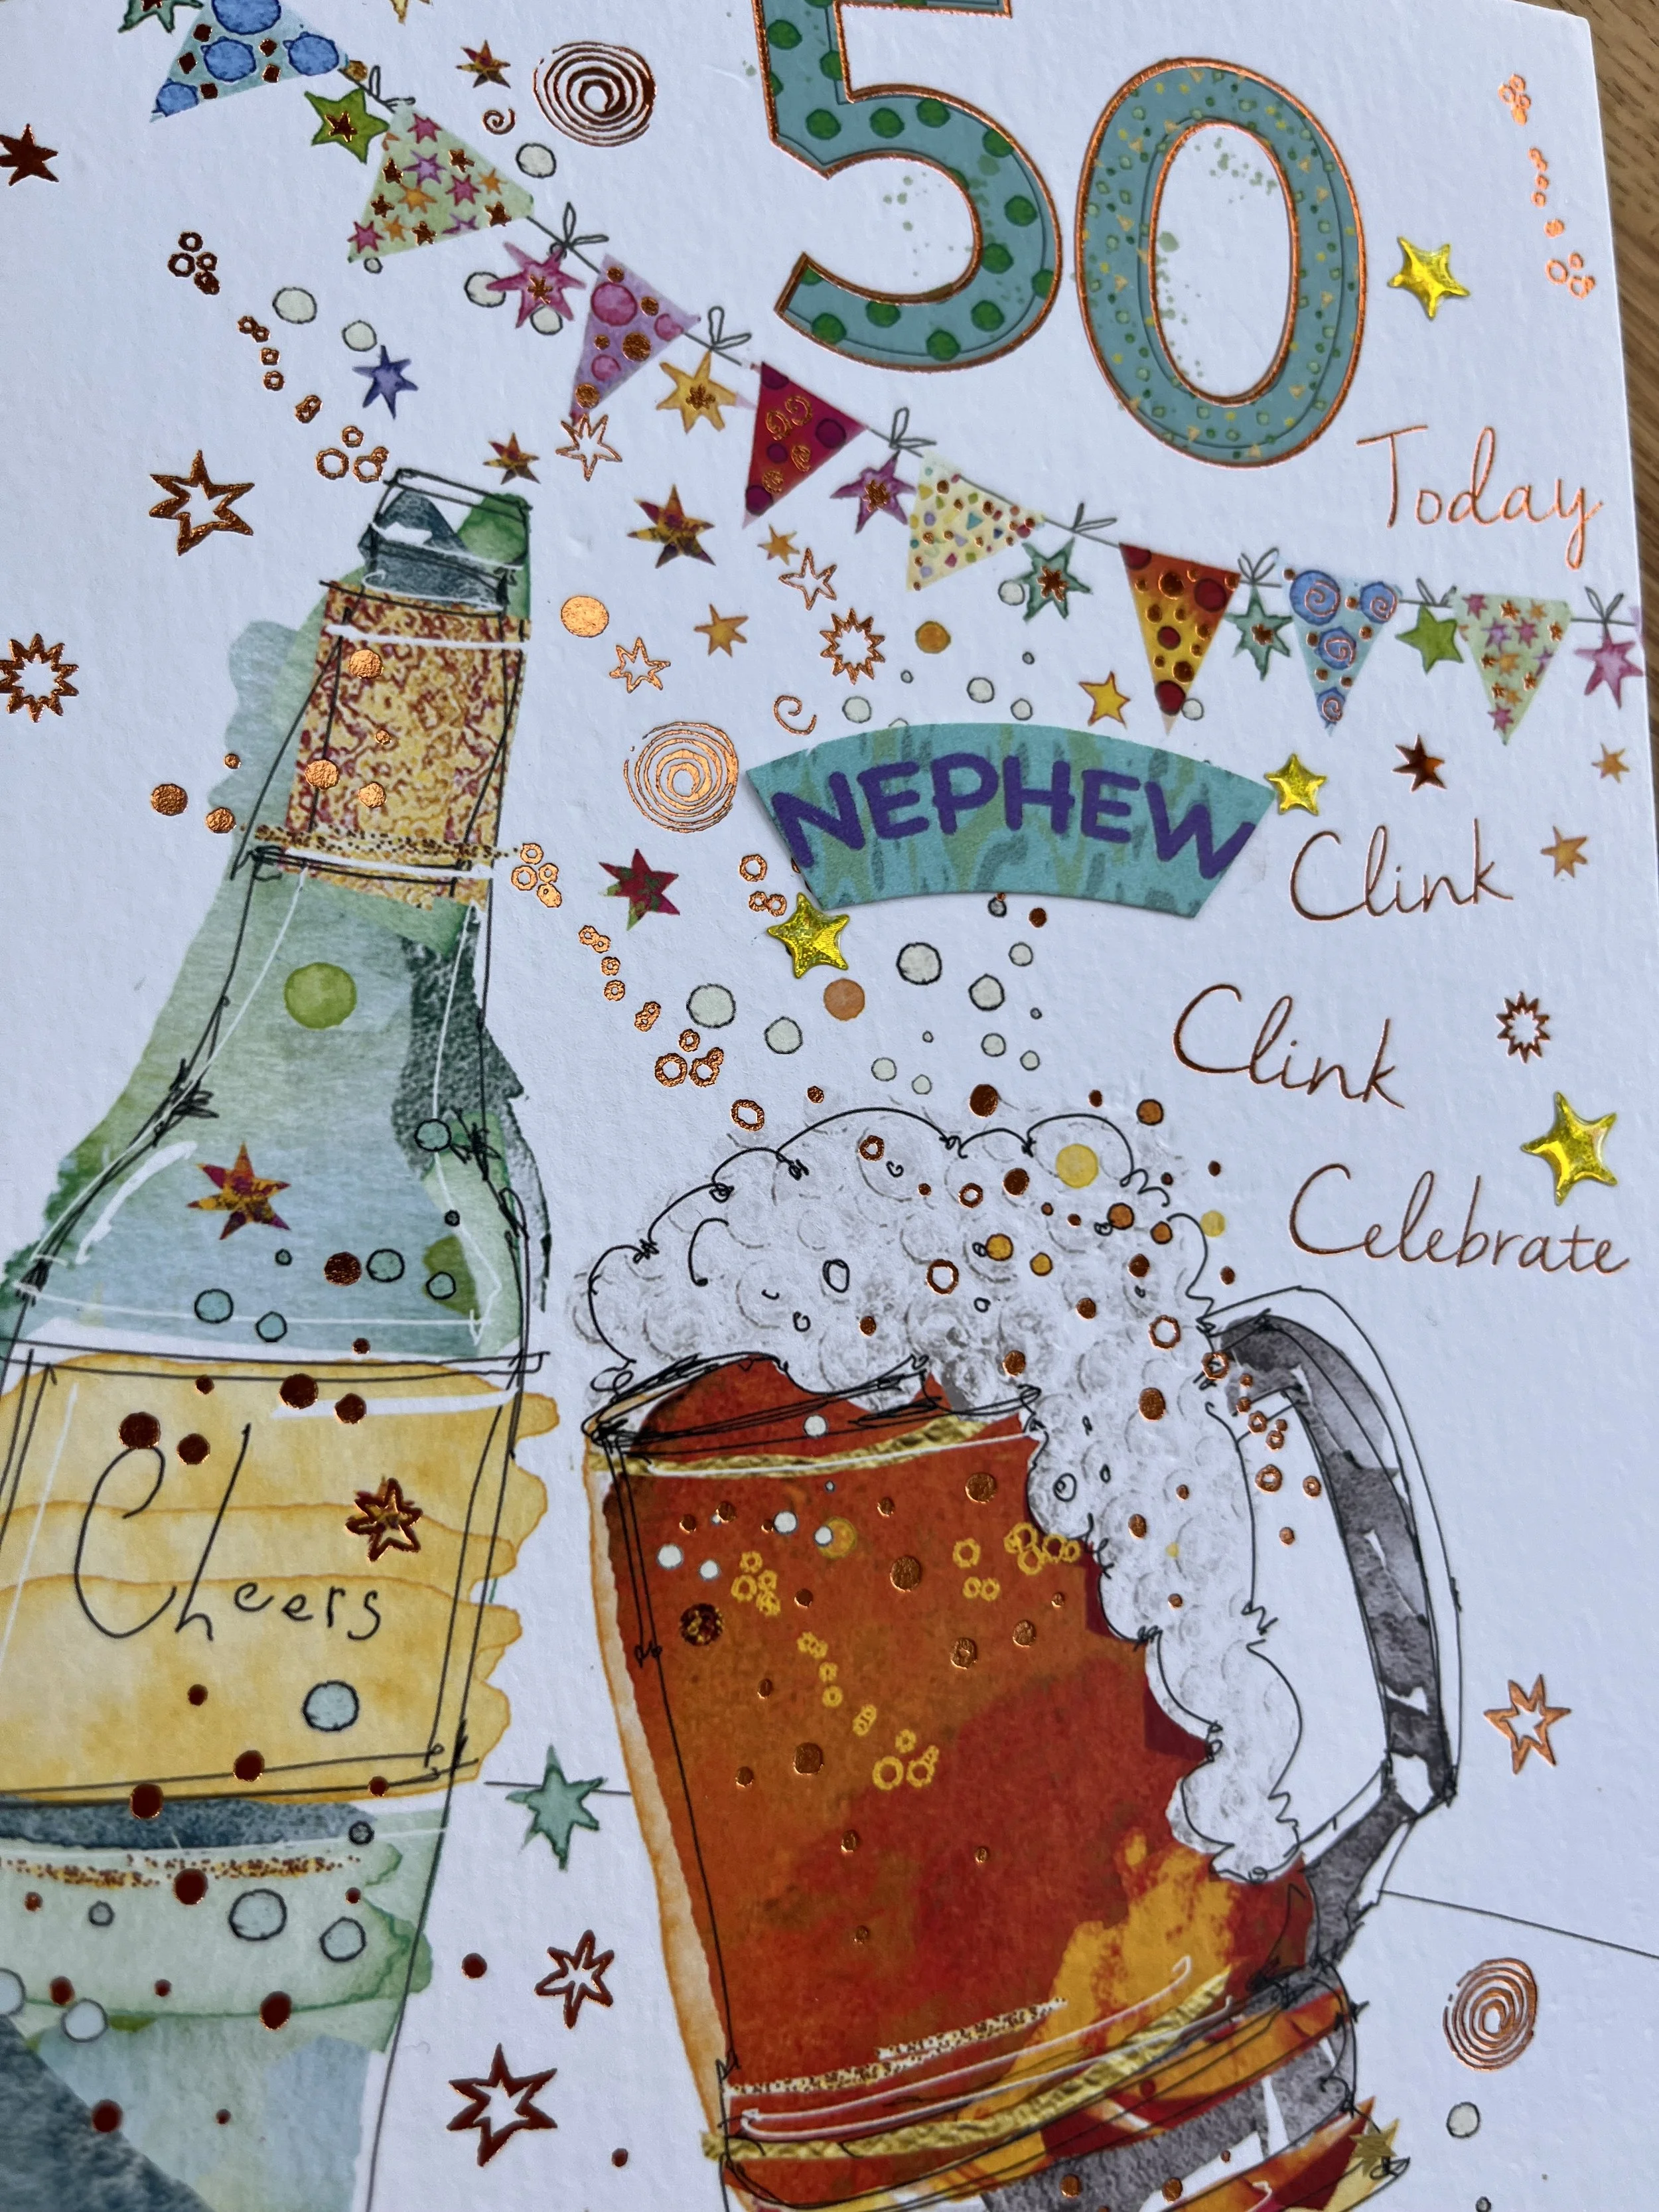 50
Today
NEPHEW
Clink
Clink
Celebrate
Cheers